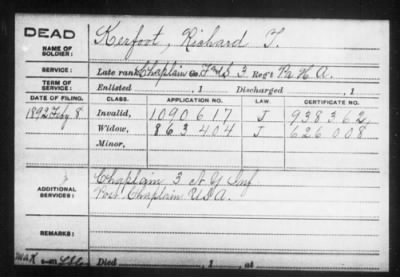 DEAD
NAME OF SOLDIER:
Kerfoot, Richard T.
SERVICE:
Late rank Chaplain Co. F&S 3 Reg't Pa H A.
TERM OF SERVICE:
Enlisted , 1 Discharged , 1
DATE OF FILING. CLASS. APPLICATION NO. LAW. CERTIFICATE NO.
1892 Feby 8 Invalid, 1090617 J 938362
Widow, 863404 J 626008
Minor,
ADDITIONAL SERVICES:
Chaplain 3 N Y Inf
Post Chaplain U S A.
REMARKS:
Died , 1 , at